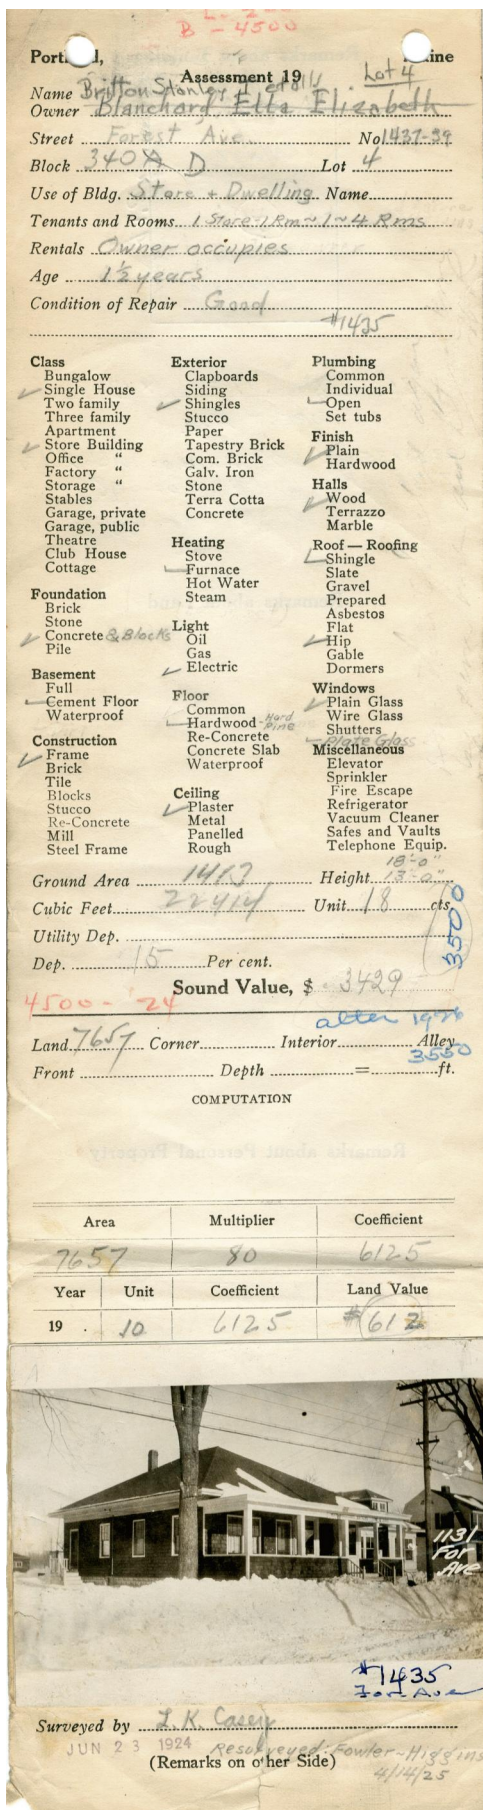 L. 200
B - 4500
Portland, Maine
Assessment 19
Lot 4
Britton Stanley et als
Name
Owner Blanchard Ella Elizabeth
Street Forest Ave. No 1437-39
Block 340 A D Lot 4
Use of Bldg. Store + Dwelling Name
Tenants and Rooms 1 Store-1 Rm ~ 1 ~ 4 Rms
Rentals Owner occupies
Age 1½ years
Condition of Repair Good
#1435
Class
Bungalow
Single House
Two family
Three family
Apartment
Store Building
Office "
Factory "
Storage "
Stables
Garage, private
Garage, public
Theatre
Club House
Cottage
Foundation
Brick
Stone
Concrete & Blocks
Pile
Basement
Full
Cement Floor
Waterproof
Construction
Frame
Brick
Tile
Blocks
Stucco
Re-Concrete
Mill
Steel Frame
Exterior
Clapboards
Siding
Shingles
Stucco
Paper
Tapestry Brick
Com. Brick
Galv. Iron
Stone
Terra Cotta
Concrete
Heating
Stove
Furnace
Hot Water
Steam
Light
Oil
Gas
Electric
Floor
Common
Hardwood - Hard Pine
Re-Concrete
Concrete Slab
Waterproof
Ceiling
Plaster
Metal
Panelled
Rough
Plumbing
Common
Individual
Open
Set tubs
Finish
Plain
Hardwood
Halls
Wood
Terrazzo
Marble
Roof — Roofing
Shingle
Slate
Gravel
Prepared
Asbestos
Flat
Hip
Gable
Dormers
Windows
Plain Glass
Wire Glass
Shutters
Plate Glass
Miscellaneous
Elevator
Sprinkler
Fire Escape
Refrigerator
Vacuum Cleaner
Safes and Vaults
Telephone Equip.
18'-0"
Ground Area 1413 Height 13'-0"
Cubic Feet 22414 Unit 18 cts.
3500
Utility Dep.
Dep. 15 Per cent.
Sound Value, $ 3429
4500 - '24
alter 1926
Land 7657 Corner Interior Alley
3550
Front Depth = ft.
COMPUTATION
Area Multiplier Coefficient
7657 80 6125
Year Unit Coefficient Land Value
19 . 10 6125 #612
1131
For
Ave
#1435
For Ave
Surveyed by L. K. Casey
JUN 23 1924 Resurveyed: Fowler-Higgins
(Remarks on other Side) 4/14/25